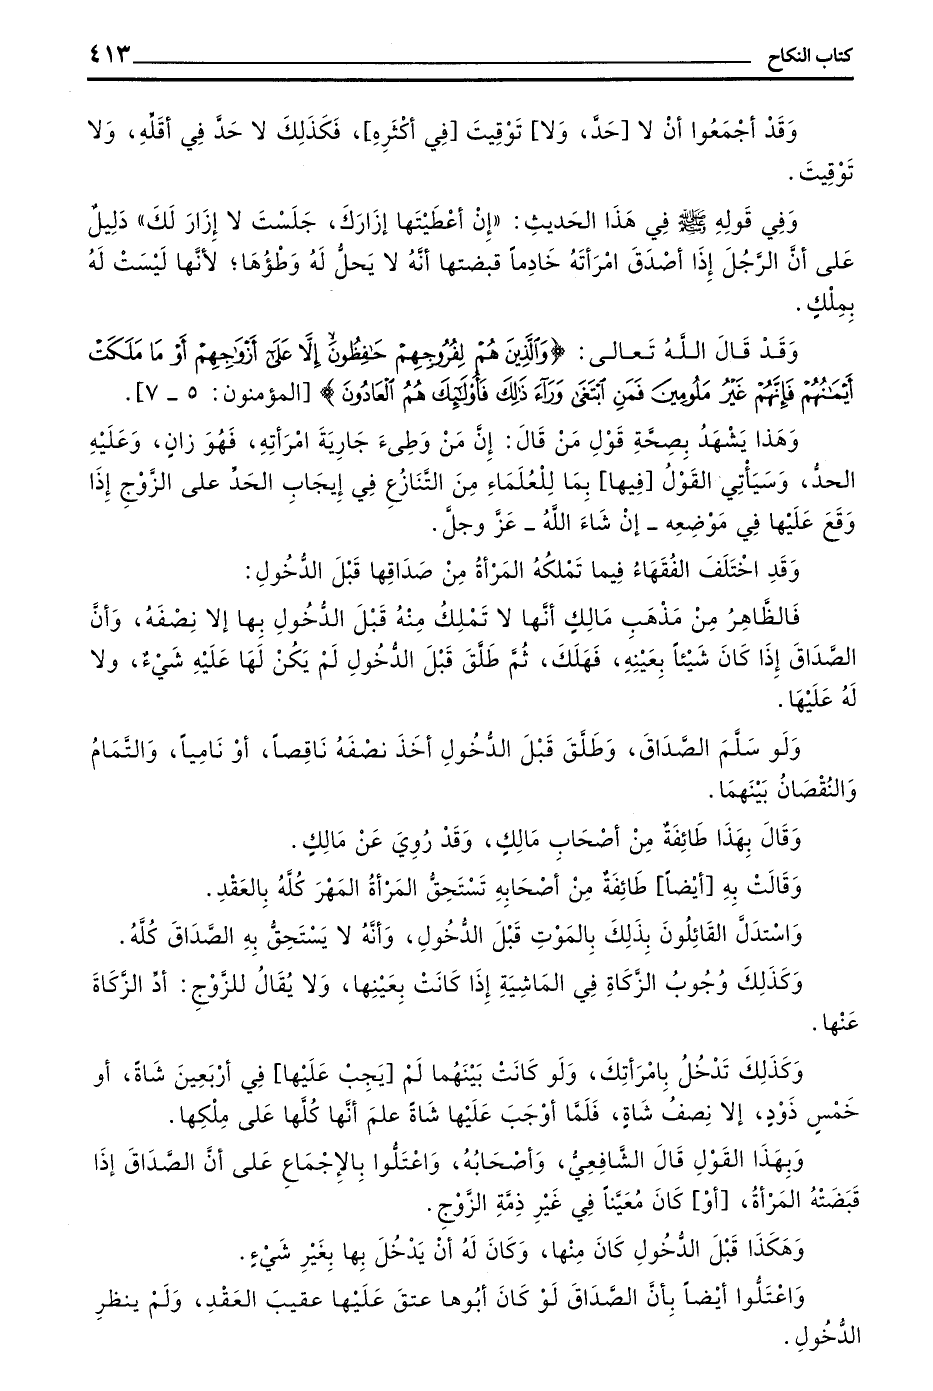 كتاب النكاح ٤١٣
وَقَدْ أَجْمَعُوا أَنْ لا [حَدَّ، وَلا] تَوْقِيتَ [فِي أَكْثَرِهِ]، فَكَذَلِكَ لا حَدَّ فِي أَقَلِّهِ، وَلا
تَوْقِيتَ.
وَفِي قَولِهِ ﷺ فِي هَذَا الحَدِيثِ: «إِنْ أَعْطَيْتَها إِزَارَكَ، جَلَسْتَ لا إِزَارَ لَكَ» دَلِيلٌ
عَلى أَنَّ الرَّجُلَ إِذَا أَصْدَقَ امْرَأَتَهُ خَادِماً قبضتها أَنَّهُ لا يَحلُّ لَهُ وَطْؤُهَا؛ لأَنَّها لَيْسَتْ لَهُ
بِمِلْكٍ.
وَقَدْ قَالَ اللَّهُ تَعالى: ﴿وَالَّذِينَ هُمْ لِفُرُوجِهِمْ حَافِظُونَ إِلَّا عَلَىٰ أَزْوَاجِهِمْ أَوْ مَا مَلَكَتْ
أَيْمَانُهُمْ فَإِنَّهُمْ غَيْرُ مَلُومِينَ فَمَنِ ابْتَغَىٰ وَرَاءَ ذَٰلِكَ فَأُولَٰئِكَ هُمُ الْعَادُونَ﴾ [المؤمنون: ٥ ـ ٧].
وَهَذا يَشْهَدُ بِصِحَّةِ قَوْلِ مَنْ قَالَ: إِنَّ مَنْ وَطِىءَ جَارِيَةَ امْرَأتِهِ، فَهُوَ زانٍ، وَعَلَيْهِ
الحدُّ، وَسَيَأْتِي القَوْلُ [فِيها] بِمَا لِلْعُلَمَاءِ مِنَ التَّنَازُعِ فِي إِيجَابِ الحَدِّ على الزَّوْجِ إِذَا
وَقَعَ عَلَيْها فِي مَوْضِعِه ـ إِنْ شَاءَ اللَّهُ ـ عَزَّ وجلَّ.
وَقَدِ اخْتَلَفَ الفُقَهَاءُ فِيما تَمْلكُهُ المَرْأَةُ مِنْ صَدَاقِها قَبْلَ الدُّخُولِ:
فَالظَّاهِرُ مِنْ مَذْهَبِ مَالِكٍ أَنَّها لا تَمْلِكُ مِنْهُ قَبْلَ الدُّخُولِ بِها إلا نِصْفَهُ، وَأَنَّ
الصَّدَاقَ إِذَا كَانَ شَيْئاً بِعَيْنِهِ، فَهَلَكَ، ثُمَّ طَلَّقَ قَبْلَ الدُّخُولِ لَمْ يَكُنْ لَهَا عَلَيْهِ شَيْءٌ، ولا
لَهُ عَلَيْهَا.
وَلَو سَلَّمَ الصَّدَاقَ، وَطَلَّقَ قَبْلَ الدُّخُولِ أَخَذَ نصْفَهُ نَاقِصاً، أَوْ نَامِياً، وَالتَّمَامُ
وَالنُقْصَانُ بَيْنَهمَا.
وَقَالَ بِهَذَا طَائِفَةٌ مِنْ أَصْحَابِ مَالِكٍ، وَقَدْ رُوِيَ عَنْ مَالِكٍ.
وَقَالَتْ بِهِ [أَيْضاً] طَائِفَةٌ مِنْ أَصْحَابِهِ تَسْتَحِقُّ المَرْأَةُ المَهْرَ كُلَّهُ بِالعَقْدِ.
وَاسْتدَلَّ القَائِلُونَ بِذَلِكَ بِالمَوْتِ قَبْلَ الدُّخُولِ، وَأَنَّهُ لا يَسْتَحِقُّ بِهِ الصَّدَاقَ كُلَّهُ.
وَكَذَلِكَ وُجُوبُ الزَّكَاةِ فِي المَاشِيَةِ إِذَا كَانَتْ بِعَيْنِها، وَلا يُقَالُ للزَّوْجِ: أَدِّ الزَّكَاةَ
عَنْها.
وَكَذَلِكَ تَدْخُلُ بِامْرأتِكَ، وَلَو كَانَتْ بَيْنَهُما لَمْ [يَجِبْ عَلَيْها] فِي أَرْبَعِينَ شَاةً، أو
خَمْسِ ذَوْدٍ، إلا نِصفُ شَاةٍ، فَلَمَّا أَوْجَبَ عَلَيْها شَاةً علمَ أَنَّها كُلَّها عَلى مِلْكِها.
وَبِهَذَا القَوْلِ قَالَ الشَّافِعِيُّ، وَأَصْحَابُهُ، وَاعْتَلُّوا بِالإِجْمَاعِ عَلى أَنَّ الصَّدَاقَ إِذَا
قَبَضَتْهُ المَرْأَةُ، [أَوْ] كَانَ مُعَيَّناً فِي غَيْرِ ذِمَّةِ الزَّوْجِ.
وَهَكَذَا قَبْلَ الدُّخُولِ كَانَ مِنْها، وَكَانَ لَهُ أَنْ يَدْخُلَ بِها بِغَيْرِ شَيْءٍ.
وَاعْتَلُّوا أَيْضاً بِأَنَّ الصَّدَاقَ لَوْ كَانَ أَبُوها عتقَ عَلَيْها عقيبَ العَقْدِ، وَلَمْ ينظرِ
الدُّخُولِ.